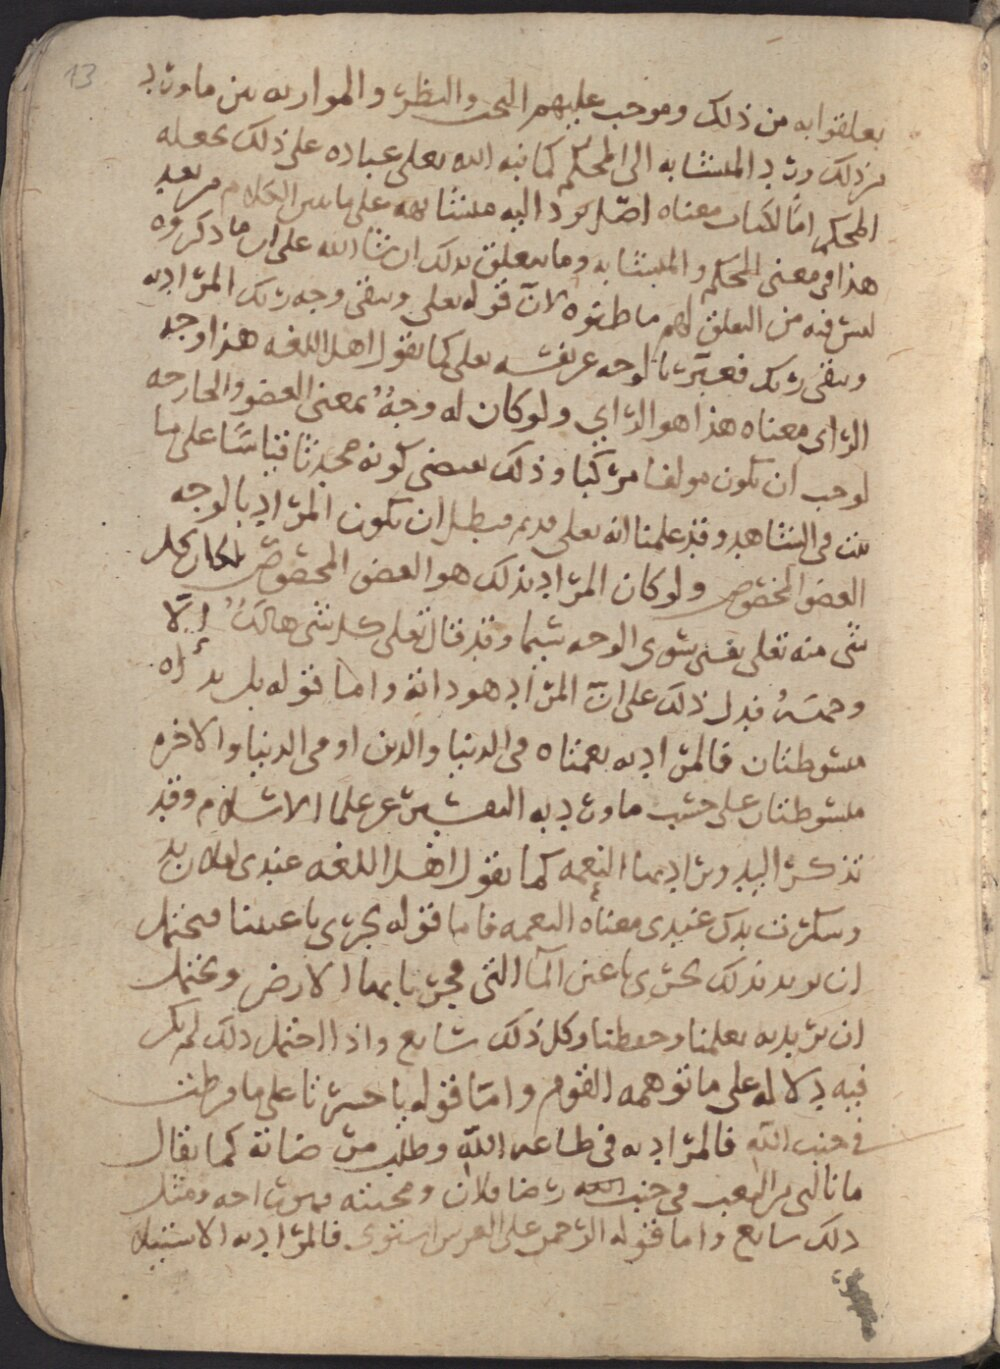 13
تعلقوا به من ذلك وموجب عليهم البحث والنظر والموازنه بين ما ورد
من ذلك ورد المتشابه الى المحكم كما نبه الله تعلى عباده على ذلك بجعله
المحكم امًا للكتاب معناه اصل يرد اليه متشابهه على ما بين الكلام من بعد
هذا في معنى المحكم والمتشابه وما يتعلق بذلك ان شا الله على ان ما ذكروه
ليس فيه من التعلق لهم ما ظنوه لانّ قوله تعلى ويبقى وجه ربك المراد به
ويبقى ربك فعبّر بالوجه عن نفسه تعلى كما يقول اهل اللغه هذا وجه
الراي معناه هذا هو الراي ولو كان له وجهٌ بمعنى العضو والجارحه
لوجب ان يكون مولفا مركبا وذلك يقتضي كونه محدثا قياسًا على ما
ثبت في الشاهد وقد علمنا انه تعلى قديم فبطل ان يكون المراد بالوجه
العضو المخصوص ولو كان المراد بذلك هو العضو المخصوص لكان كل
شي منه تعلى يفنى سوى الوجه شيما وقد قال تعلى كل شي هالكٌ إلّا
وجهَهُ فدل ذلك على انّ المراد هو ذاته واما قوله بل يداه
مبسوطتان فالمراد به نعمتاه في الدنيا والدين او في الدنيا والاخره
مبسوطتان على حسب ما ورد به التفسير عن علما الاسلام وقد
تذكر اليد ويراد بها النعمه كما يقول اهل اللغه عندي لفلان يد
وشكرت يدك عندي معناه النعمه فاما قوله تجري باعيننا فيحتمل
ان يريد بذلك تجري باعين المآ التي فجرنا بها الارض ويحتمل
ان يريد به بعلمنا وحفظنا وكل ذلك شايع واذا احتمل ذلك لم يكن
فيه دلاله على ما توهمه القوم وامّا قوله يا حسرتا على ما فرطت
في جنب الله فالمراد به في طاعه الله وطلب مرضاته كما يقال
ما نالني من التعب في جنب رضا فلان ومحبته فهو راحه ومثل
ذلك سايع واما قوله الرحمن على العرش استوى فالمراد به الاستيلا